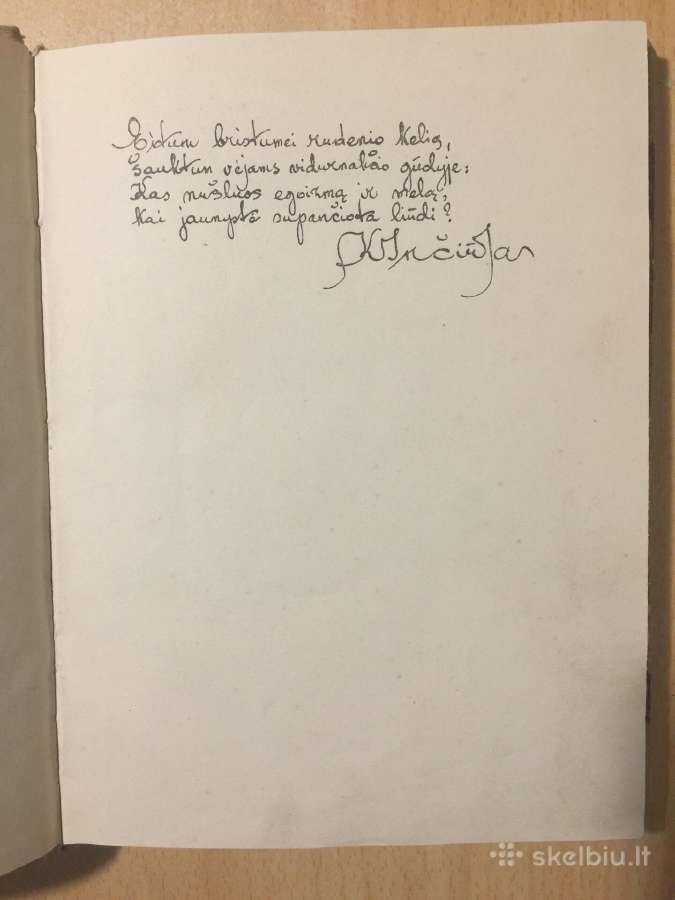 Eitum bristumei rudenio kelią,
Šauktum vėjams vidurnakčio gūdyje:
Kas nušluos egoizmą ir melą,
Kai jaunystė supančiota liūdi?
skelbiu.lt